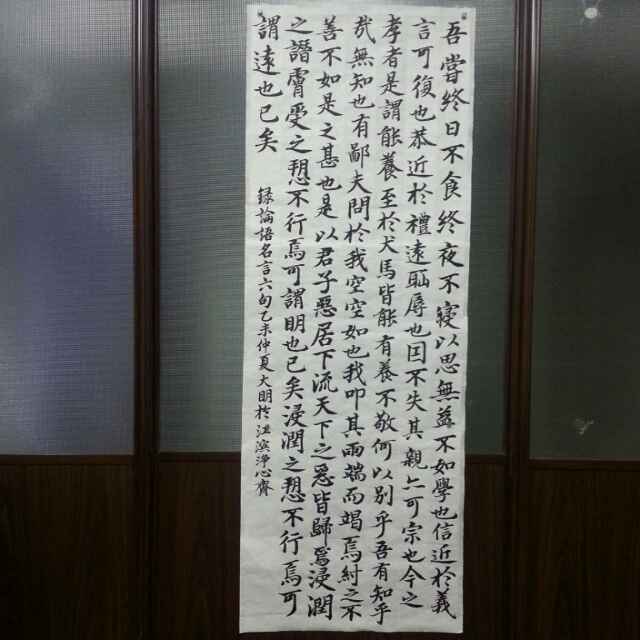 吾嘗終日不食終夜不寢以思無益不如學也信近於義
言可復也恭近於禮遠耻辱也因不失其親亦可宗也今之
孝者是謂能養至於犬馬皆能有養不敬何以別乎吾有知乎
哉無知也有鄙夫問於我空空如也我叩其兩端而竭焉紂之不
善不如是之甚也是以君子惡居下流天下之惡皆歸焉浸潤
之譖膚受之愬不行焉可謂明也已矣浸潤之愬不行焉可
謂遠也已矣
錄論語名言六句乙未仲夏大明於江濱淨心齋